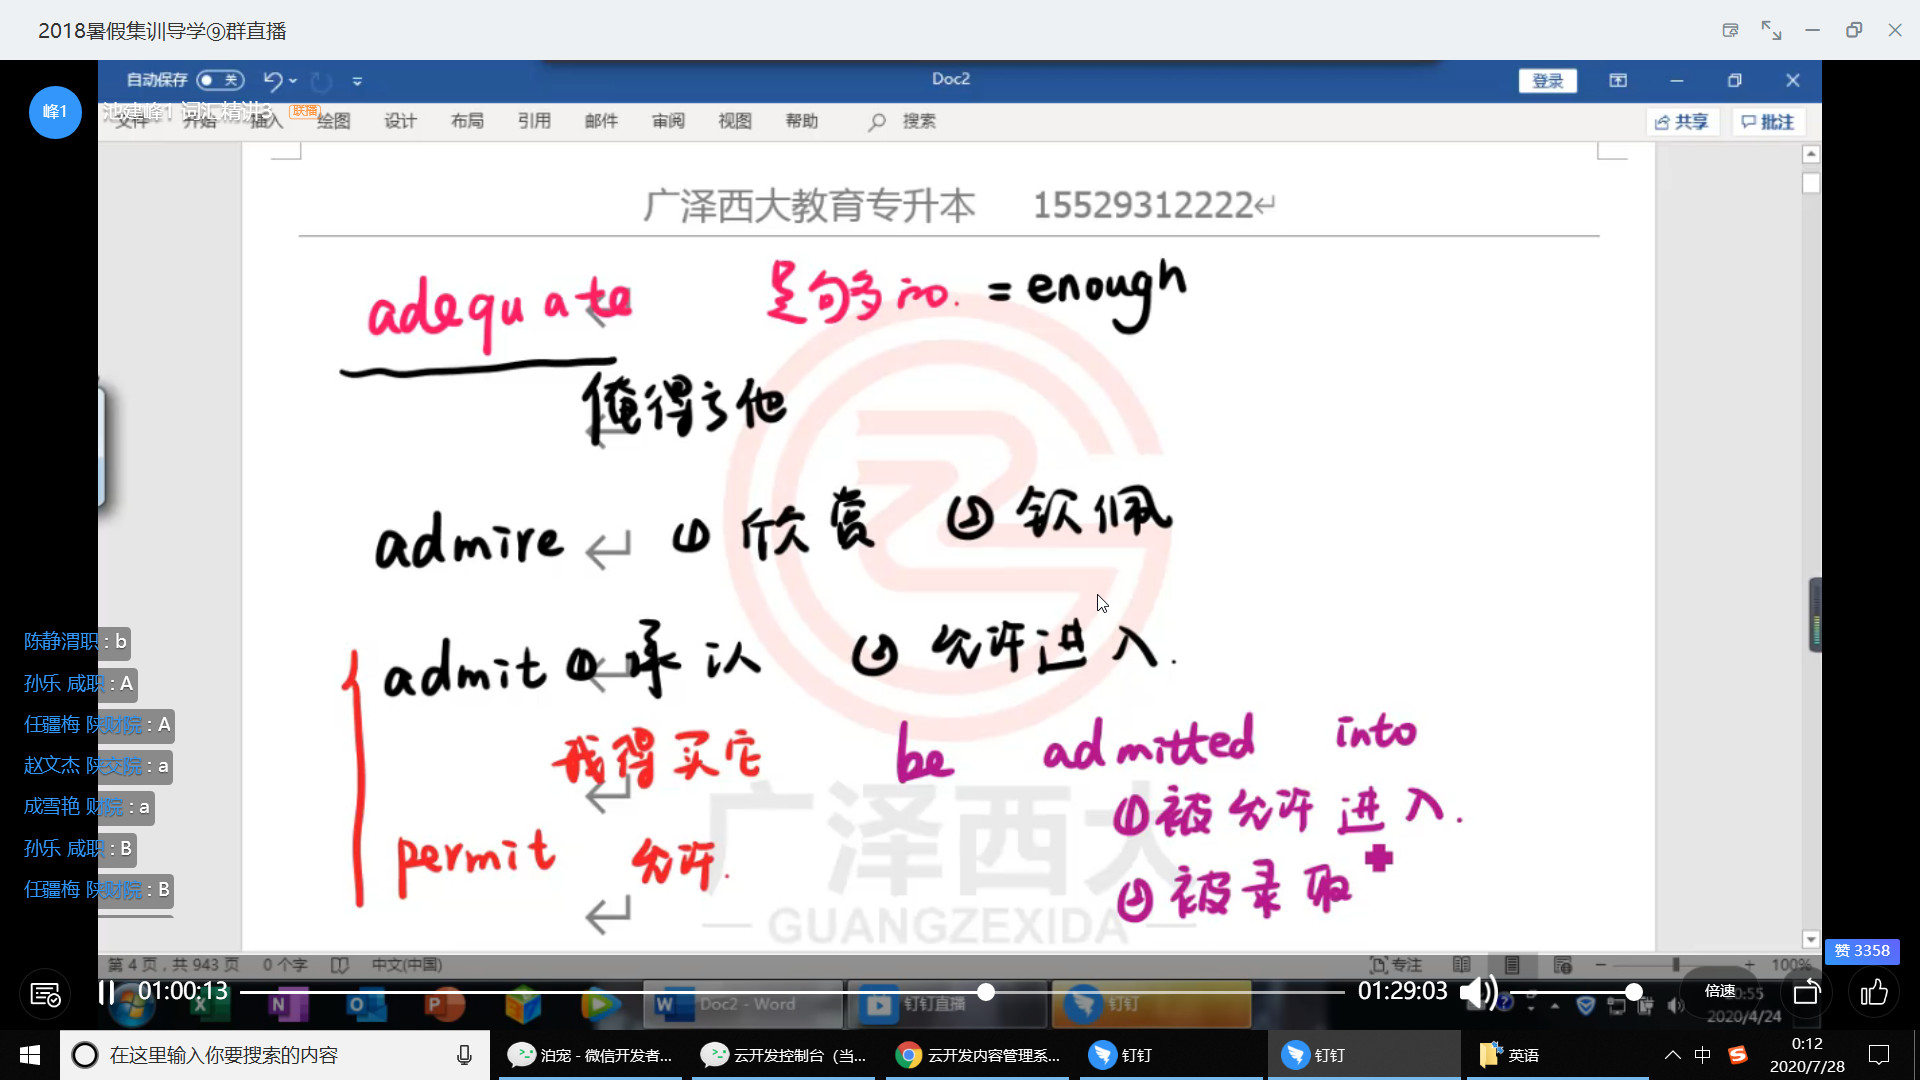 2018暑假集训导学⑨群直播
自动保存 关
Doc2
登录
峰1
池建峰1 词汇精讲3 联播
文件 开始 插入 绘图 设计 布局 引用 邮件 审阅 视图 帮助 搜索
共享 批注
广泽西大教育专升本 15529312222
adequate 足够多的. = enough
俺得亏他
admire ① 欣赏 ② 钦佩
admit ① 承认 ② 允许进入.
我得买它 be admitted into
① 被允许进入.
permit 允许.
② 被录取
广泽西大
GUANGZEXIDA
陈静渭职 : b
孙乐 咸职 : A
任疆梅 陕财院 : A
赵文杰 陕交院 : a
成雪艳 财院 : a
孙乐 咸职 : B
任疆梅 陕财院 : B
赞 3358
第 4 页，共 943 页 0 个字 中文(中国)
专注 100%
01:00:13
01:29:03
倍速
Doc2 - Word
钉钉直播
钉钉
2020/4/24
在这里输入你要搜索的内容
泊宠 - 微信开发者...
云开发控制台（当...
云开发内容管理系...
钉钉
钉钉
英语
中
0:12
2020/7/28